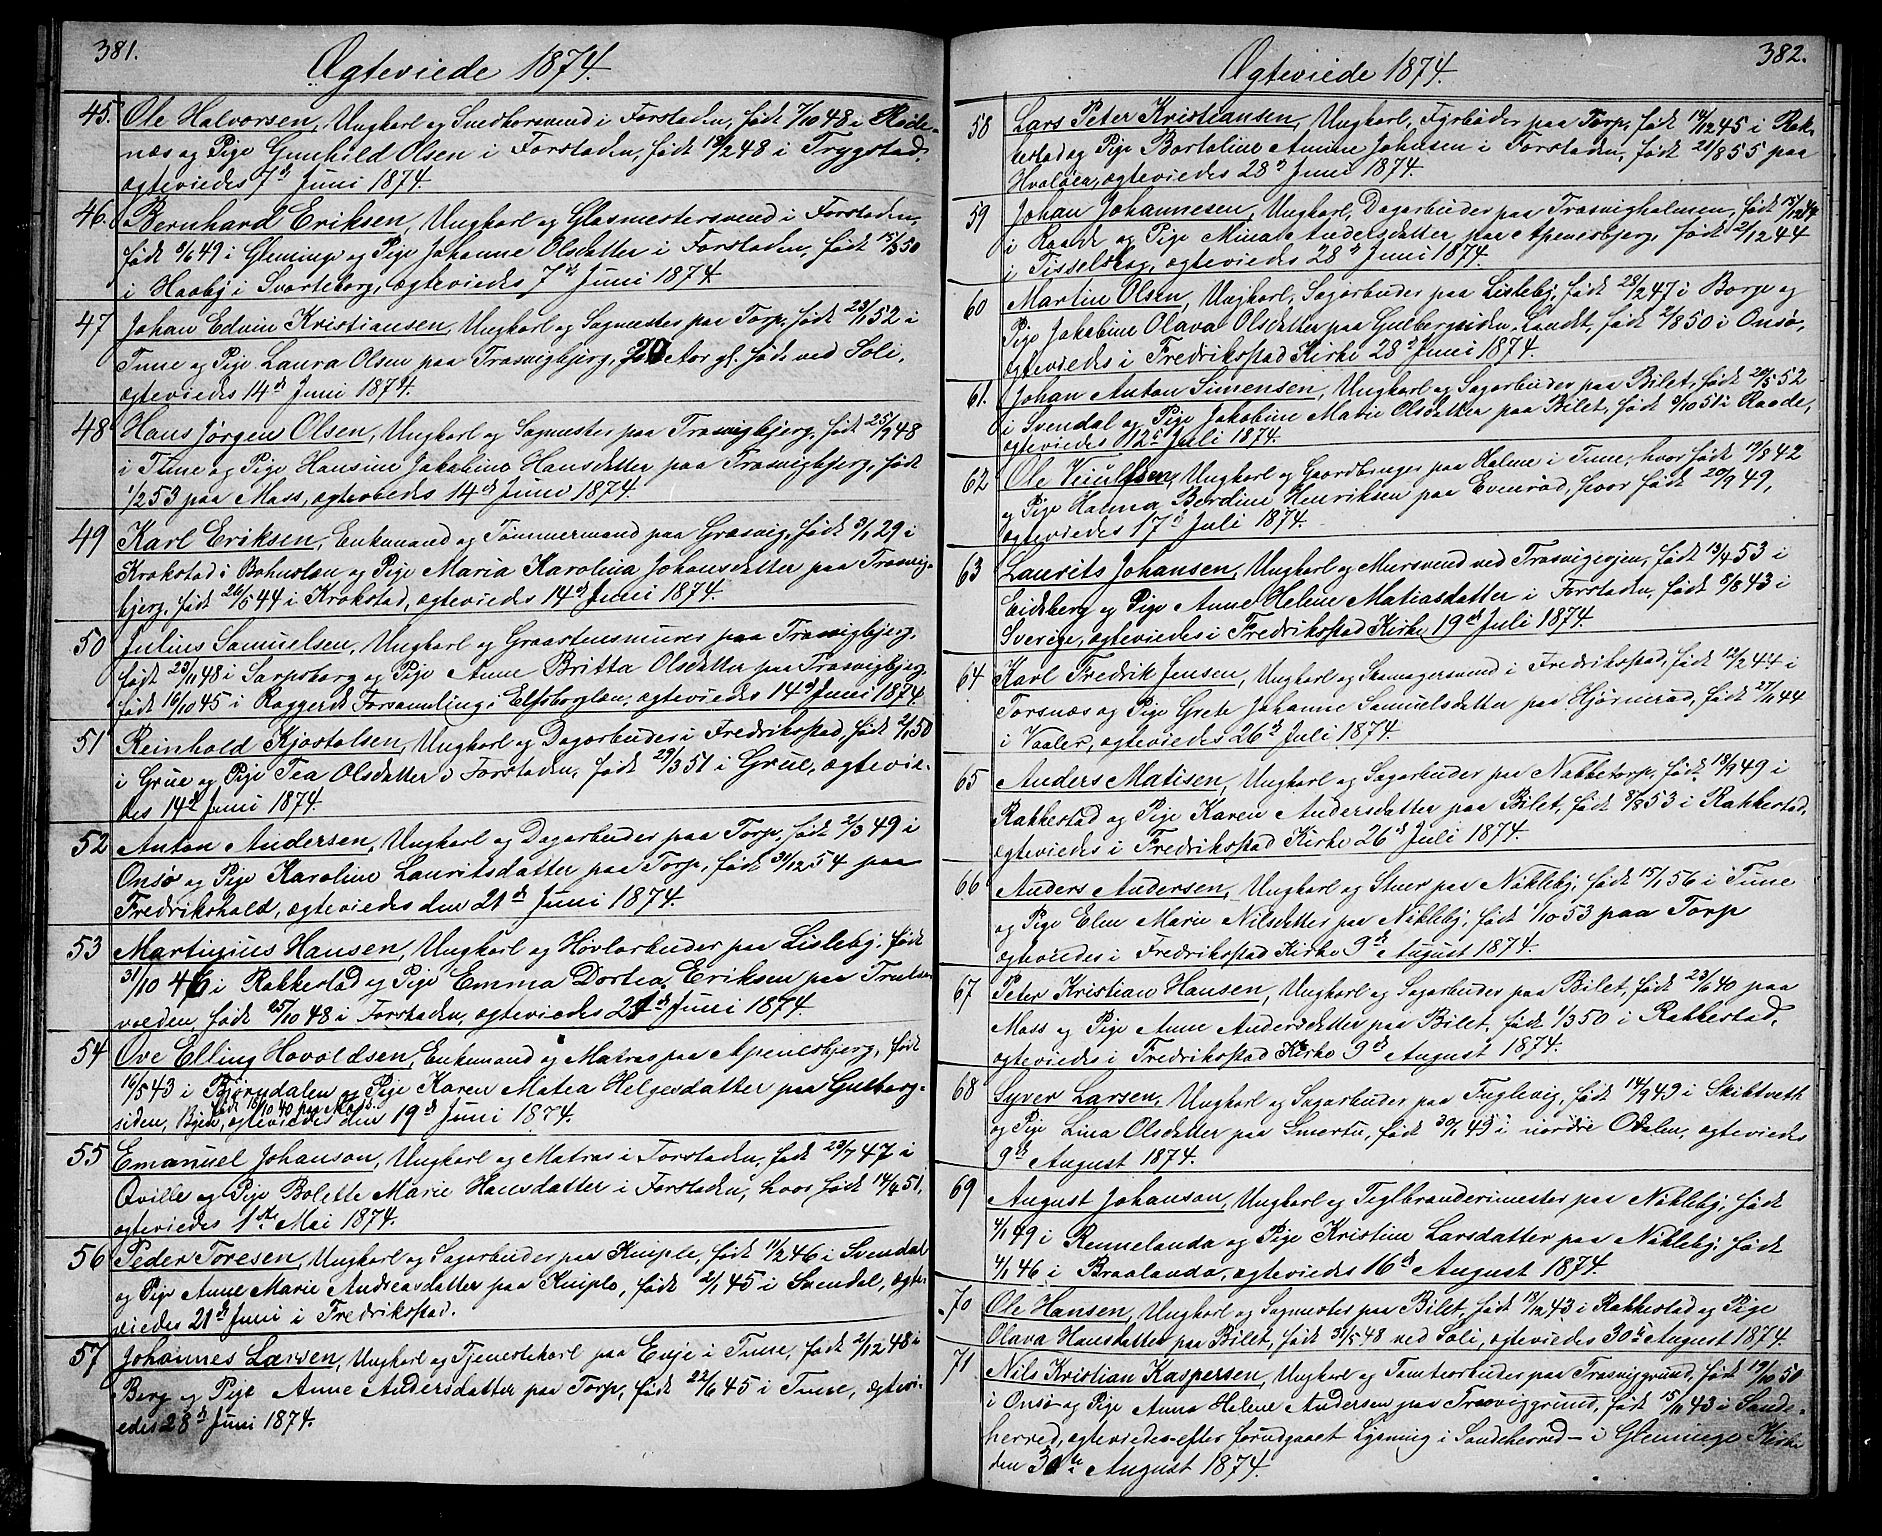 381.
Ægteviede 1874.
45. Ole Halvorsen, Ungkarl og Smedkorsvend i Forstaden, født 7/10 48 i Ride-
næs og Pige Gunhild Olsen i Forstaden, født 19/2 48 i Trygstad,
ægteviedes 7d Juni 1874.
46. Bernhard Eriksen, Ungkarl og Glasmestersvend i Forstaden,
født 8/6 49 i Glemminge og Pige Johanne Olsdatter i Forstaden, født 15/3 50
i Haaby i Svarteborg, ægteviedes 7d Juni 1874.
47 Johan Edvin Kristiansen, Ungkarl og Sagmester paa Torp, født 23/1 52 i
Tune og Pige Laura Olsen paa Trosvigbjerg, 20 Aar gl. født ved Soli,
ægteviedes 14d Juni 1874.
48 Hans Jørgen Olsen, Ungkarl og Sagmester paa Trosvigbjerg, født 25/9 48
i Tune og Pige Hansine Jakobine Hansdatter paa Trosvigbjerg, født
1/2 53 paa Moss, ægteviedes 14d Juni 1874.
49 Karl Eriksen, Enkemand og Tømmermand paa Græsvig, født 3/1 29 i
Krokstad i Bohuslän og Pige Maria Karolina Johansdatter paa Trosvig-
bjerg, født 26/6 44 i Krokstad, ægteviedes 14d Juni 1874.
50 Julius Samuelsen, Ungkarl og Graastensmurer paa Trosvigbjerg,
født 23/11 48 i Sarpsborg og Pige Anne Britta Olsdatter paa Trosvigbjerg
født 16/10 45 i Raggerds Forsamling i Elfsborglän, ægteviedes 14d Juni 1874.
51 Reinhold Kjøstolsen, Ungkarl og Dagarbeider i Fredrikstad, født 2/1 50
i Grue og Pige Tea Olsdatter i Forstaden, født 29/3 51 i Grue, ægtevie-
des 14d Juni 1874.
52 Anton Andersen, Ungkarl og Dagarbeider paa Torp, født 2/3 49 i
Onsø og Pige Karoline Lauritsdatter paa Torp, født 31/12 54 paa
Fredrikshald, ægteviedes den 21d Juni 1874.
53 Martinius Hansen, Ungkarl og Hovlarbeider paa Lisleby, født
31/10 46 i Rakkestad og Pige Emma Dortea Eriksen paa
født 25/10 48 i Forstaden, ægteviedes 21d Juni 1874.
54 Ove Elling Hovoldsen, Enkemand og Matros paa Apenesbjerg, født
16/5 43 i Bjørndalen og Pige Karen Matea Helgesdatter paa Gulberg-
siden, Byen, født 15/10 40 paa Moss. ægteviedes den 19d Juni 1874.
55 Emanuel Johanson, Ungkarl og Matros i Forstaden, født 29/7 47 i
Qville og Pige Bolette Marie Hansdatter i Forstaden, hvor født 14/4 51,
ægteviedes 1ste Mai 1874.
56 Peder Toresen, Ungkarl og Sagarbeider paa Kniple, født 11/2 46 i Svendal
og Pige Anne Marie Andreasdatter paa Kniple, født 2/1 45 i Svendal, ægte-
viedes 21d Juni i Fredrikstad.
57 Johannes Larsen, Ungkarl og Tjenestekarl paa Evje i Tune, født 2/12 48 i
Berg og Pige Anne Andersdatter paa Torp, født 22/6 45 i Tune, ægtevi-
edes 28d Juni 1874.
382.
Ægteviede 1874.
58 Lars Peter Kristiansen, Ungkarl, Fyrbøder paa Torp, født 14/12 45 i Rak-
kestad og Pige Bortoline Amine Johnsen i Forstaden, født 21/8 55 paa
Hvaløen, ægteviedes 28d Juni 1874.
59 Johan Johannesen, Ungkarl, Dagarbeider paa Trosvigholmen, født 15/12 42
i Raade og Pige Mina Andersdatter paa Apenesbjerg, født 2/12 44
i Tisselskog, ægteviedes 28d Juni 1874.
60 Martin Olsen, Ungkarl, Sagarbeider paa Lisleby, født 28/2 47 i Borge og
Pige Jakobine Olava Olsdatter paa Gulbergsiden, Landet, født 2/8 50 i Onsø,
ægteviedes i Fredrikstad Kirke 28d Juni 1874.
61. Johan Anton Simensen, Ungkarl og Sagarbeider paa Bilet, født 20/5 52
i Svendal og Pige Jakobine Marie Olsdatter paa Bilet, født 9/10 51 i Raade,
ægteviedes 12t Juli 1874.
62 Ole Veiulfsen, Ungkarl og Gaardbruger paa Holme i Tune, hvor født 19/8 42
og Pige Halma Berdine Henriksen paa Evenrød, hvor født 20/9 49,
ægteviedes 17d Juli 1874.
63 Laurits Johansen, Ungkarl og Mursvend ved Trosvigveien, født 13/4 53 i
Eidsberg og Pige Anne Helene Matiasdatter i Forstaden, født 8/8 43 i
Sverige, ægteviedes i Fredrikstad Kirke 19d Juli 1874.
64 Karl Fredrik Jensen, Ungkarl og Skomagersvend i Fredrikstad, født 12/2 44 i
Torsnæs og Pige Grete Johanne Samuelsdatter paa Hjørnerød, født 27/1 44
i Vaaler, ægteviedes 26d Juli 1874.
65 Anders Matisen, Ungkarl og Sagarbeider paa Nabbetorp, født 18/9 49 i
Rakkestad og Pige Karen Andersdatter paa Bilet, født 8/8 53 i Rakkestad,
ægteviedes i Fredrikstad Kirke 26d Juli 1874.
66 Anders Andersen, Ungkarl og Stuer paa Nøkleby, født 15/1 56 i Tune
og Pige Elen Marie Nilsdatter paa Nøkleby, født 1/10 53 paa Torp
ægteviedes i Fredrikstad Kirke 9d August 1874.
67 Peter Kristian Hansen, Ungkarl og Sagarbeider paa Bilet, født 23/6 40 paa
Moss og Pige Anne Andersdatter paa Bilet, født 1/3 50 i Rakkestad,
ægteviedes i Fredrikstad Kirke 9d August 1874.
68 Syver Larsen, Ungkarl og Sagarbeider paa Fuglevig, født 14/9 49 i Skibtveth
og Pige Lina Olsdatter paa Smertu, født 30/1 49 i nordre Odalen, ægteviedes
9d August 1874.
69 August Johanson, Ungkarl og Teglbrænderimester paa Nøkleby, født
4/1 49 i Rennelanda og Pige Kristine Larsdatter paa Nøkleby, født
4/1 46 i Braalanda, ægteviedes 16d August 1874.
70 Ole Hansen, Ungkarl og Sagmester paa Bilet, født 13/12 43 i Rakkestad og Pige
Olava Hansdatter paa Bilet, født 31/5 48 ved Soli, ægteviedes 30t August 1874.
71 Nils Kristian Kaspersen, Ungkarl og Tomtearbeider paa Trosviggrund, født 19/10 50
i Onsø og Pige Anna Helene Andersen paa Trosviggrund, født 15/11 43 i Sande-
herred, ægteviedes - efter forudgaaet Lysning i Sandeherred - i Glemminge Kirke
den 30te August 1874.